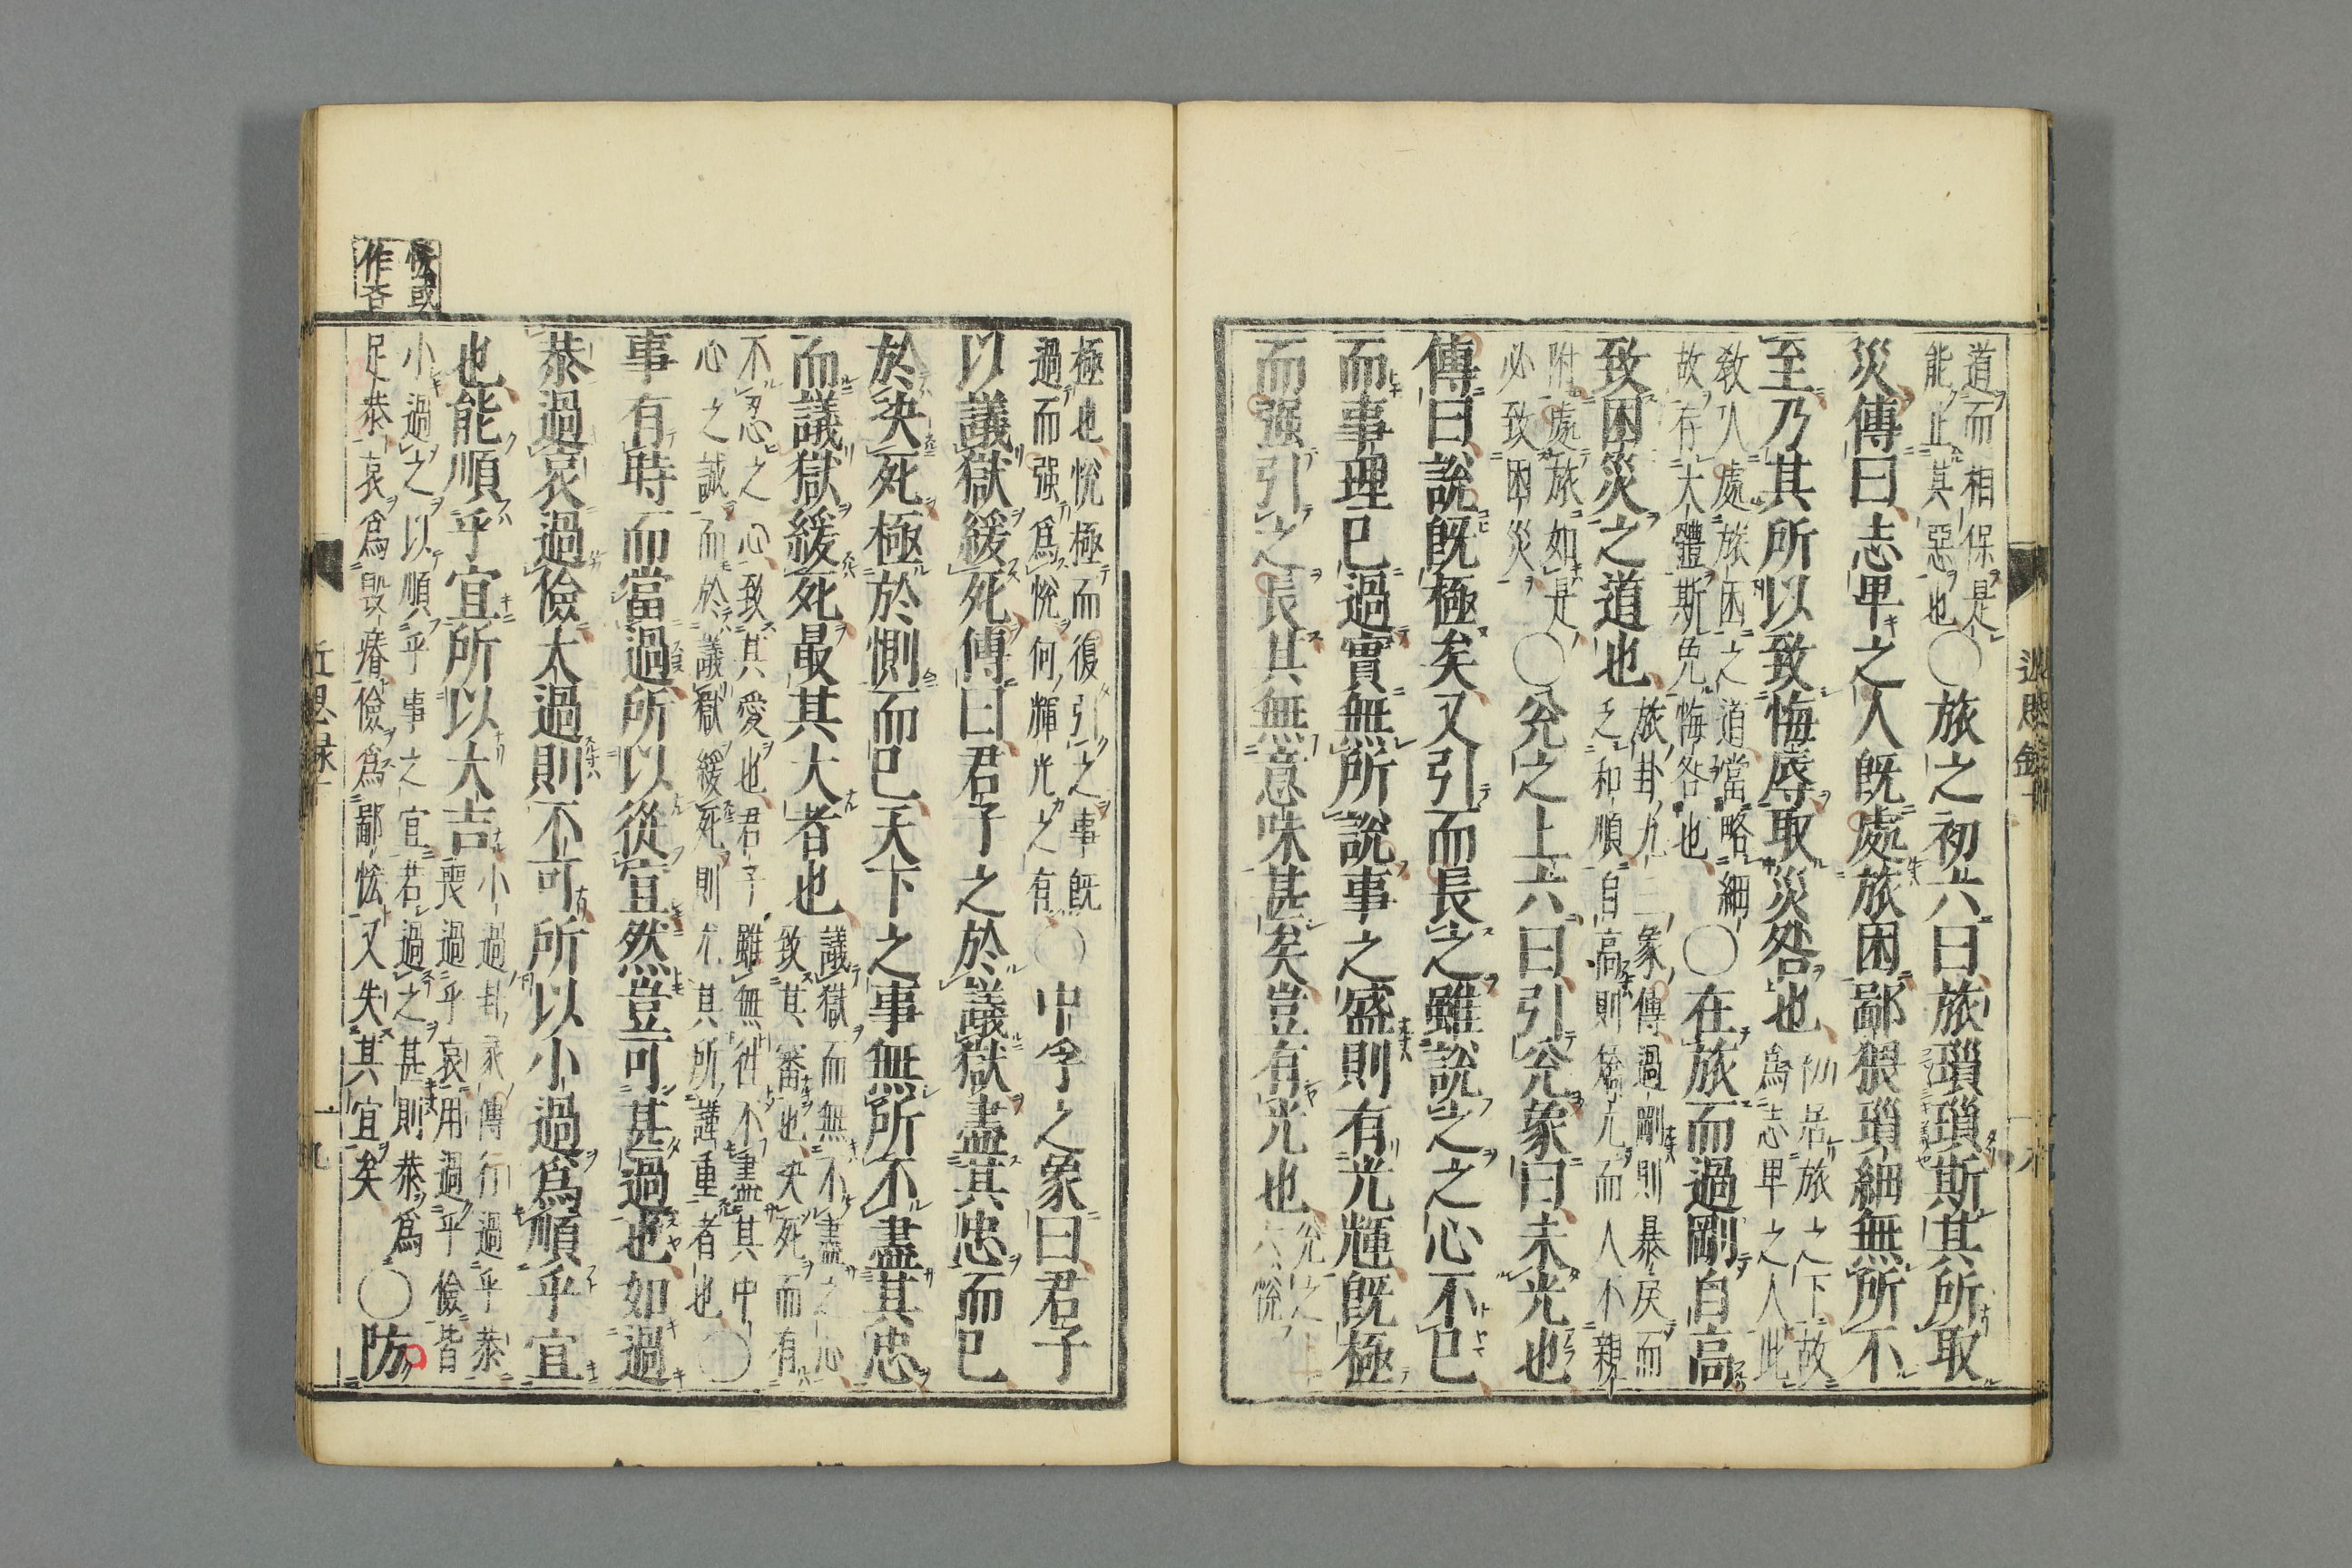 道而相保是
能止其惡也
○旅之初六曰旅瑣瑣斯其所取
災傳曰志卑之人既處旅困鄙猥瑣細無所不
至乃其所以致悔辱取災咎也
初居旅之下故
爲志卑之人此
教人處旅困之道當略細
故存大體斯免悔咎也
○在旅而過剛自高
致困災之道也
旅卦九三象傳過剛則暴戾而
乏和順自高則矯亢而人不親
附處旅如是
必致困災
○兊之上六曰引兊象曰未光也
傳曰說既極矣又引而長之雖說之之心不已
而事理已過實無所說事之盛則有光輝既極
而强引之長其無意味甚矣豈有光也
兊之上
六悅
極也悅極而復引之事既
過而强爲悅何輝光之有
○中孚之象曰君子
以議獄緩死傳曰君子之於議獄盡其忠而已
於决死極於惻而已天下之事無所不盡其忠
而議獄緩死最其大者也
議獄而無不盡之心
致其審也决死而有
不忍之心致其愛也君子雖無徃不盡其中
心之誠而於議獄緩死則尤其所謹重者也
○
事有時而當過所以從宜然豈可甚過也如過
恭過哀過儉太過則不可所以小過爲順乎宜
也能順乎宜所以大吉
小過卦彖傳行過乎恭
喪過乎哀用過乎儉皆
小過之以順乎事之宜若過之甚則恭爲
足恭哀爲毀瘠儉爲鄙恡又失其宜矣
○防
恡或
作吝
近思録